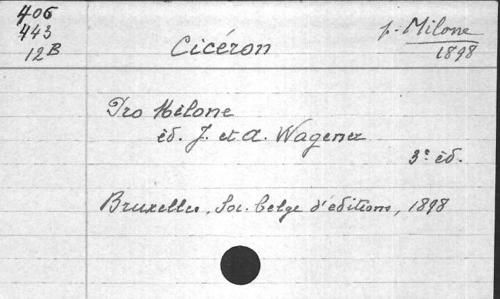 406
443
12B
Cicéron
p. Milone
1898
Pro Milone
éd. J. et A. Wagener
3e éd.
Bruxelles, Soc. belge d'éditions, 1898